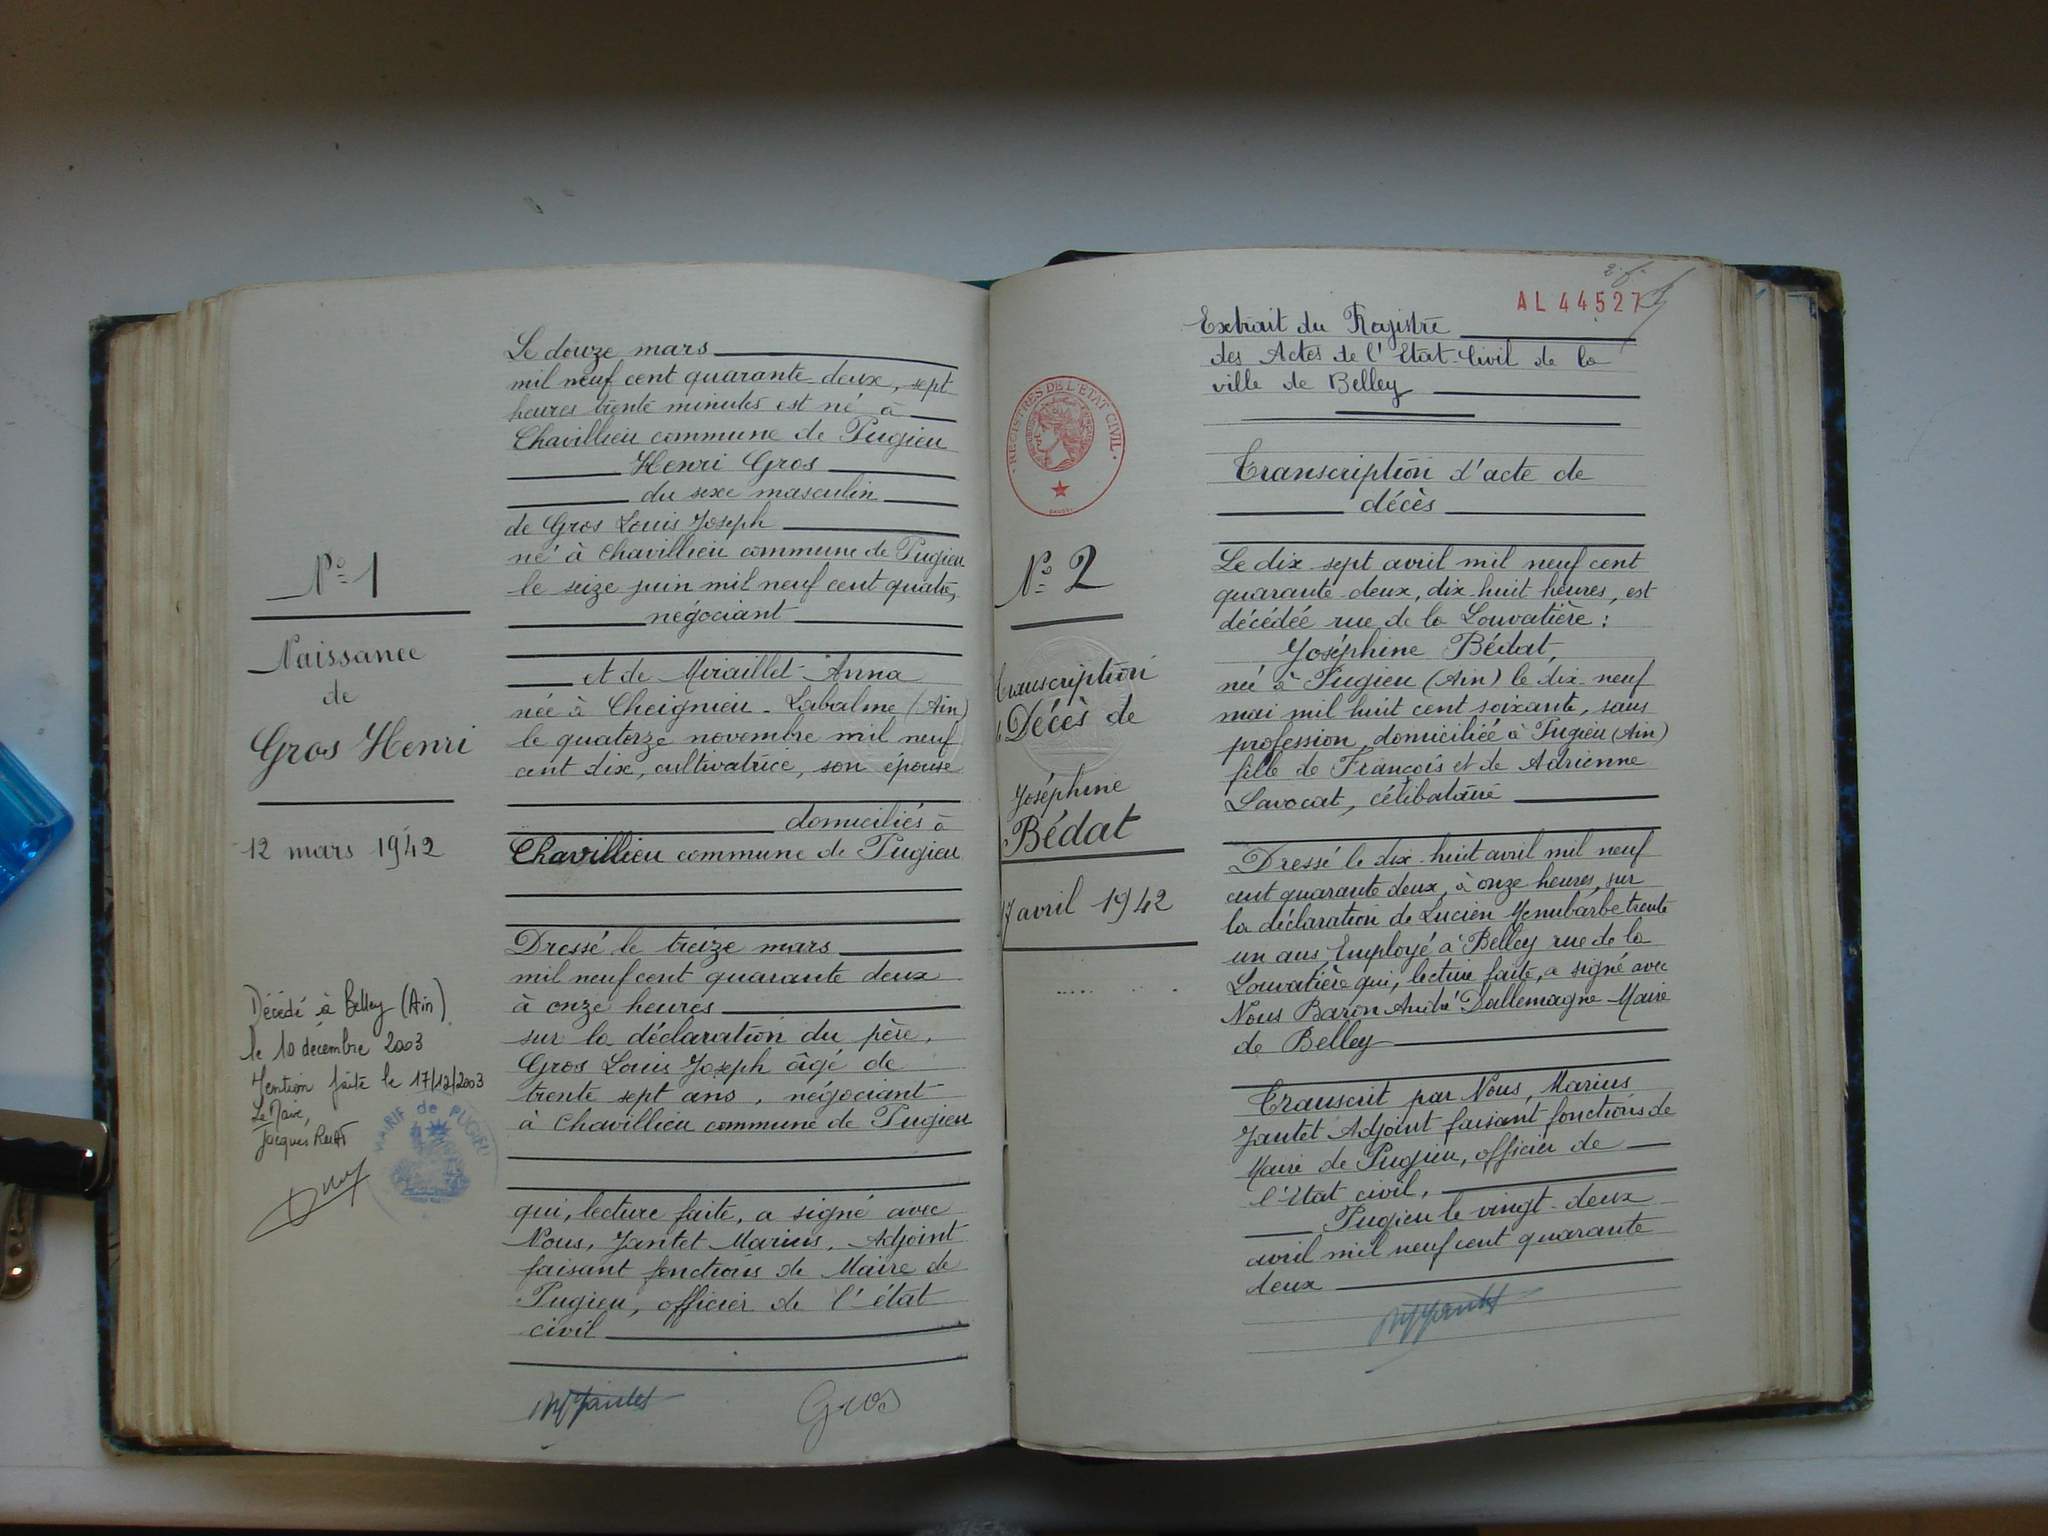 N° 1
Naissance
de
Gros Henri
12 mars 1942
Décédé à Belley (Ain)
le 10 décembre 2003
Mention faite le 17/12/2003
Le Maire,
Jacques
MAIRIE de PUGIEU
Le douze mars
mil neuf cent quarante deux, sept
heures trente minutes est né à
Chavillieu commune de Pugieu
Henri Gros
du sexe masculin
de Gros Louis Joseph
né à Chavillieu commune de Pugieu
le seize juin mil neuf cent quatre,
négociant
et de Miraillet Anna
née à Cheignieu-Labalme (Ain)
le quatorze novembre mil neuf
cent dix, cultivatrice, son épouse
domiciliés à
Chavillieu commune de Pugieu
Dressé le treize mars
mil neuf cent quarante deux
à onze heures
sur la déclaration du père,
Gros Louis Joseph âgé de
trente sept ans, négociant
à Chavillieu commune de Pugieu
qui, lecture faite, a signé avec
Nous, Jantet Marius, Adjoint
faisant fonctions de Maire de
Pugieu, officier de l'état
civil
MJantet Gros
AL 44527
REGISTRES DE L'ETAT CIVIL
N° 2
Transcription
Décès de
Joséphine
Bédat
17 avril 1942
Extrait du Registre
des Actes de l'Etat-Civil de la
ville de Belley
Transcription d'acte de
décès
Le dix-sept avril mil neuf cent
quarante-deux, dix-huit heures, est
décédée rue de la Louvatière :
Joséphine Bédat,
née à Pugieu (Ain) le dix-neuf
mai mil huit cent soixante, sans
profession, domiciliée à Pugieu (Ain)
fille de François et de Adrienne
Lavocat, célibataire
Dressé le dix-huit avril mil neuf
cent quarante deux, à onze heures, sur
la déclaration de Lucien Menubarbe trente
un ans, Employé à Belley rue de la
Louvatière qui, lecture faite, a signé avec
Nous Baron André Dallemagne Maire
de Belley
Transcrit par Nous, Marius
Jantet Adjoint faisant fonctions de
Maire de Pugieu, officier de
l'Etat civil,
Pugieu le vingt-deux
avril mil neuf cent quarante
deux
MJantet